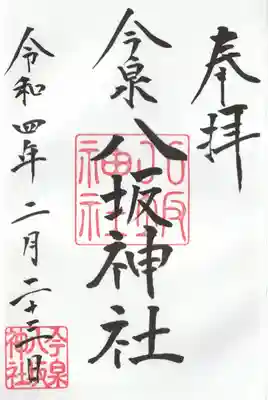 奉拝
今泉八坂神社
八坂神社
令和四年二月二十三日
今泉八坂神社